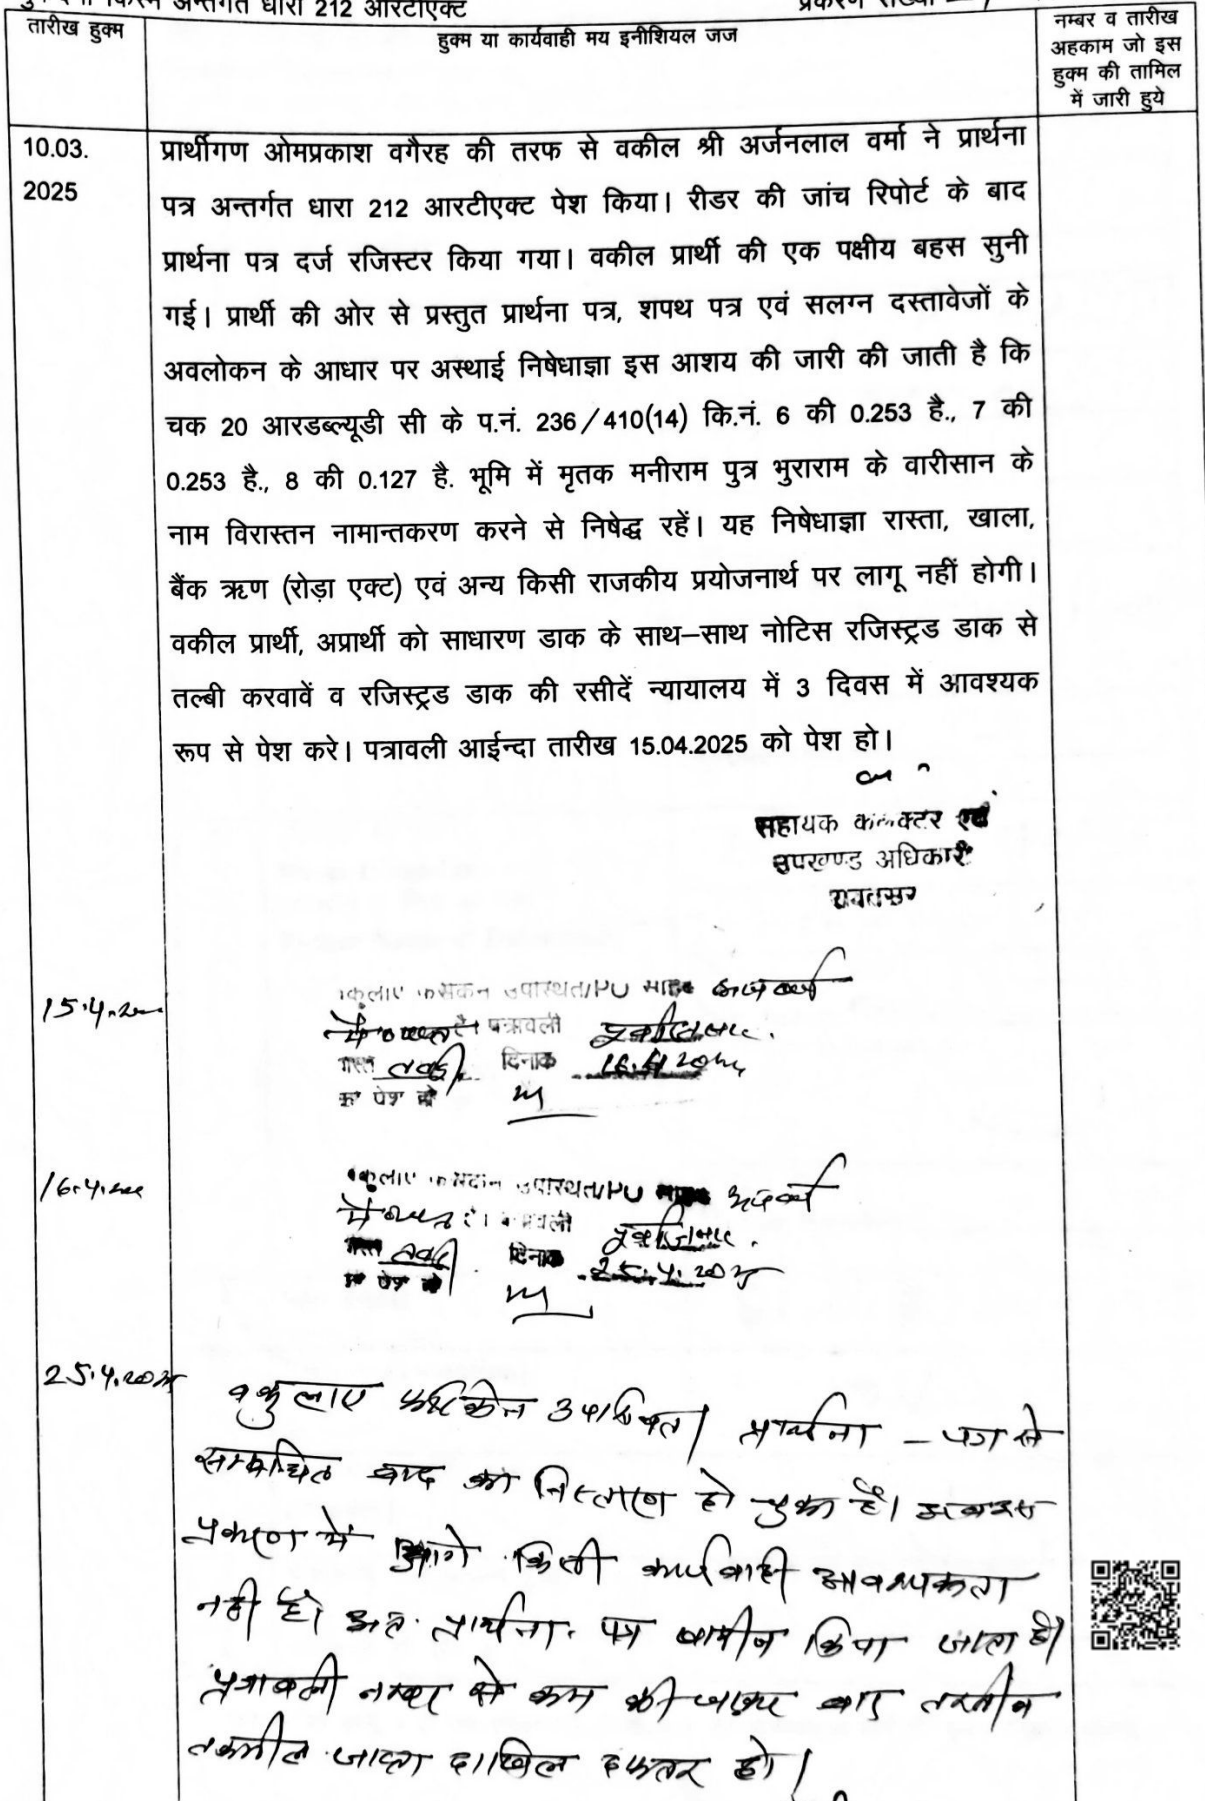 अन्तर्गत धारा 212 आरटीएक्ट
प्रकरण संख्या
तारीख हुक्म
हुक्म या कार्यवाही मय इनीशियल जज
नम्बर व तारीख
अहकाम जो इस
हुक्म की तामिल
में जारी हुये
10.03.
2025
प्रार्थीगण ओमप्रकाश वगैरह की तरफ से वकील श्री अर्जनलाल वर्मा ने प्रार्थना
पत्र अन्तर्गत धारा 212 आरटीएक्ट पेश किया। रीडर की जांच रिपोर्ट के बाद
प्रार्थना पत्र दर्ज रजिस्टर किया गया। वकील प्रार्थी की एक पक्षीय बहस सुनी
गई। प्रार्थी की ओर से प्रस्तुत प्रार्थना पत्र, शपथ पत्र एवं सलग्न दस्तावेजों के
अवलोकन के आधार पर अस्थाई निषेधाज्ञा इस आशय की जारी की जाती है कि
चक 20 आरडब्ल्यूडी सी के प.नं. 236/410(14) कि.नं. 6 की 0.253 है., 7 की
0.253 है., 8 की 0.127 है. भूमि में मृतक मनीराम पुत्र भुराराम के वारीसान के
नाम विरास्तन नामान्तकरण करने से निषेद्ध रहें। यह निषेधाज्ञा रास्ता, खाला,
बैंक ऋण (रोड़ा एक्ट) एवं अन्य किसी राजकीय प्रयोजनार्थ पर लागू नहीं होगी।
वकील प्रार्थी, अप्रार्थी को साधारण डाक के साथ–साथ नोटिस रजिस्ट्रड डाक से
तल्बी करवावें व रजिस्ट्रड डाक की रसीदें न्यायालय में 3 दिवस में आवश्यक
रूप से पेश करे। पत्रावली आईन्दा तारीख 15.04.2025 को पेश हो।
सहायक कलक्टर एवं
उपखण्ड अधिकारी
रावतसर
15.4.
उपस्थित/PU
पत्रावली
दिनांक 16.4.
पेश हो
16.4.
उपस्थित/PU
दिनांक 25.4.2025
पेश हो
25.4.2025
वकुलाए फरिकेन उपस्थित। प्रार्थना – पत्र से
सम्बन्धित वाद का निस्तारण हो चुका है।
प्रकरण में आगे किसी कार्यवाही आवश्यकता
नही है। अतः प्रार्थना पत्र किया जाता है।
पत्रावली नम्बर से कम की जाकर बाद
तकमील जाब्ता दाखिल दफ्तर हो।